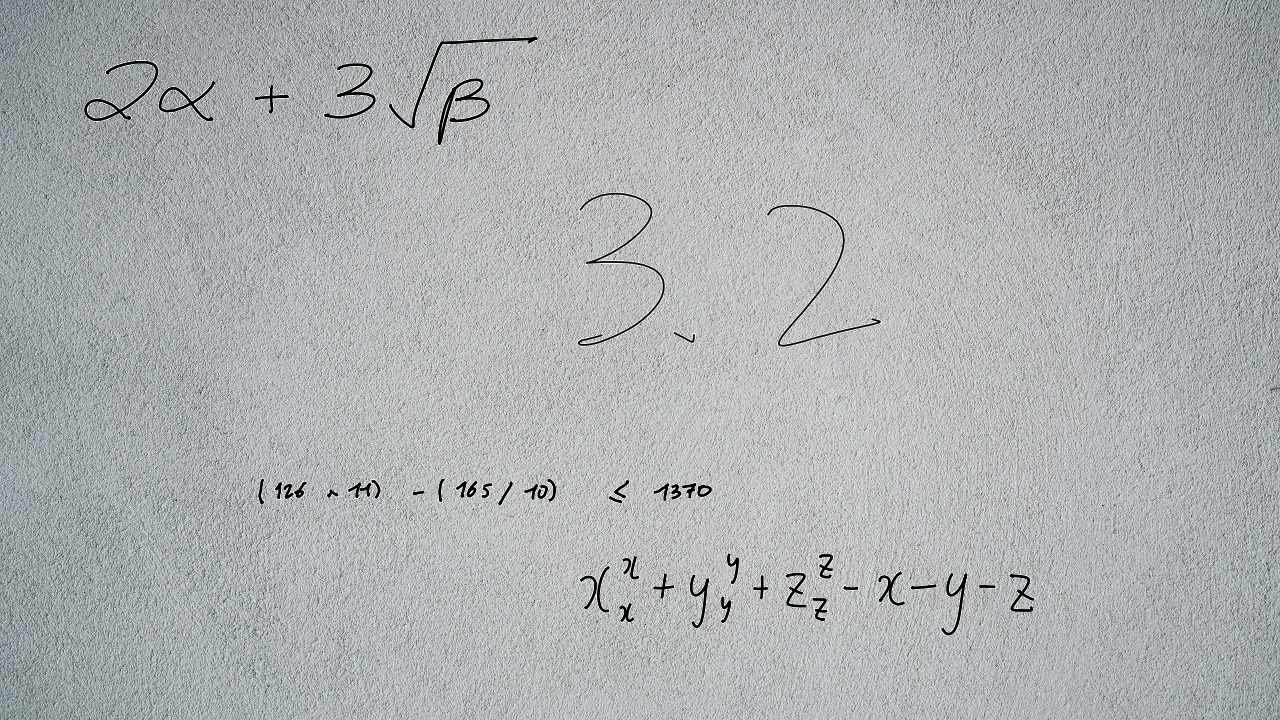 2α + 3√β
3. 2
(126 × 11) - (165 / 10) ≤ 1370
x_x^x + y_y^y + z_z^z - x - y - z